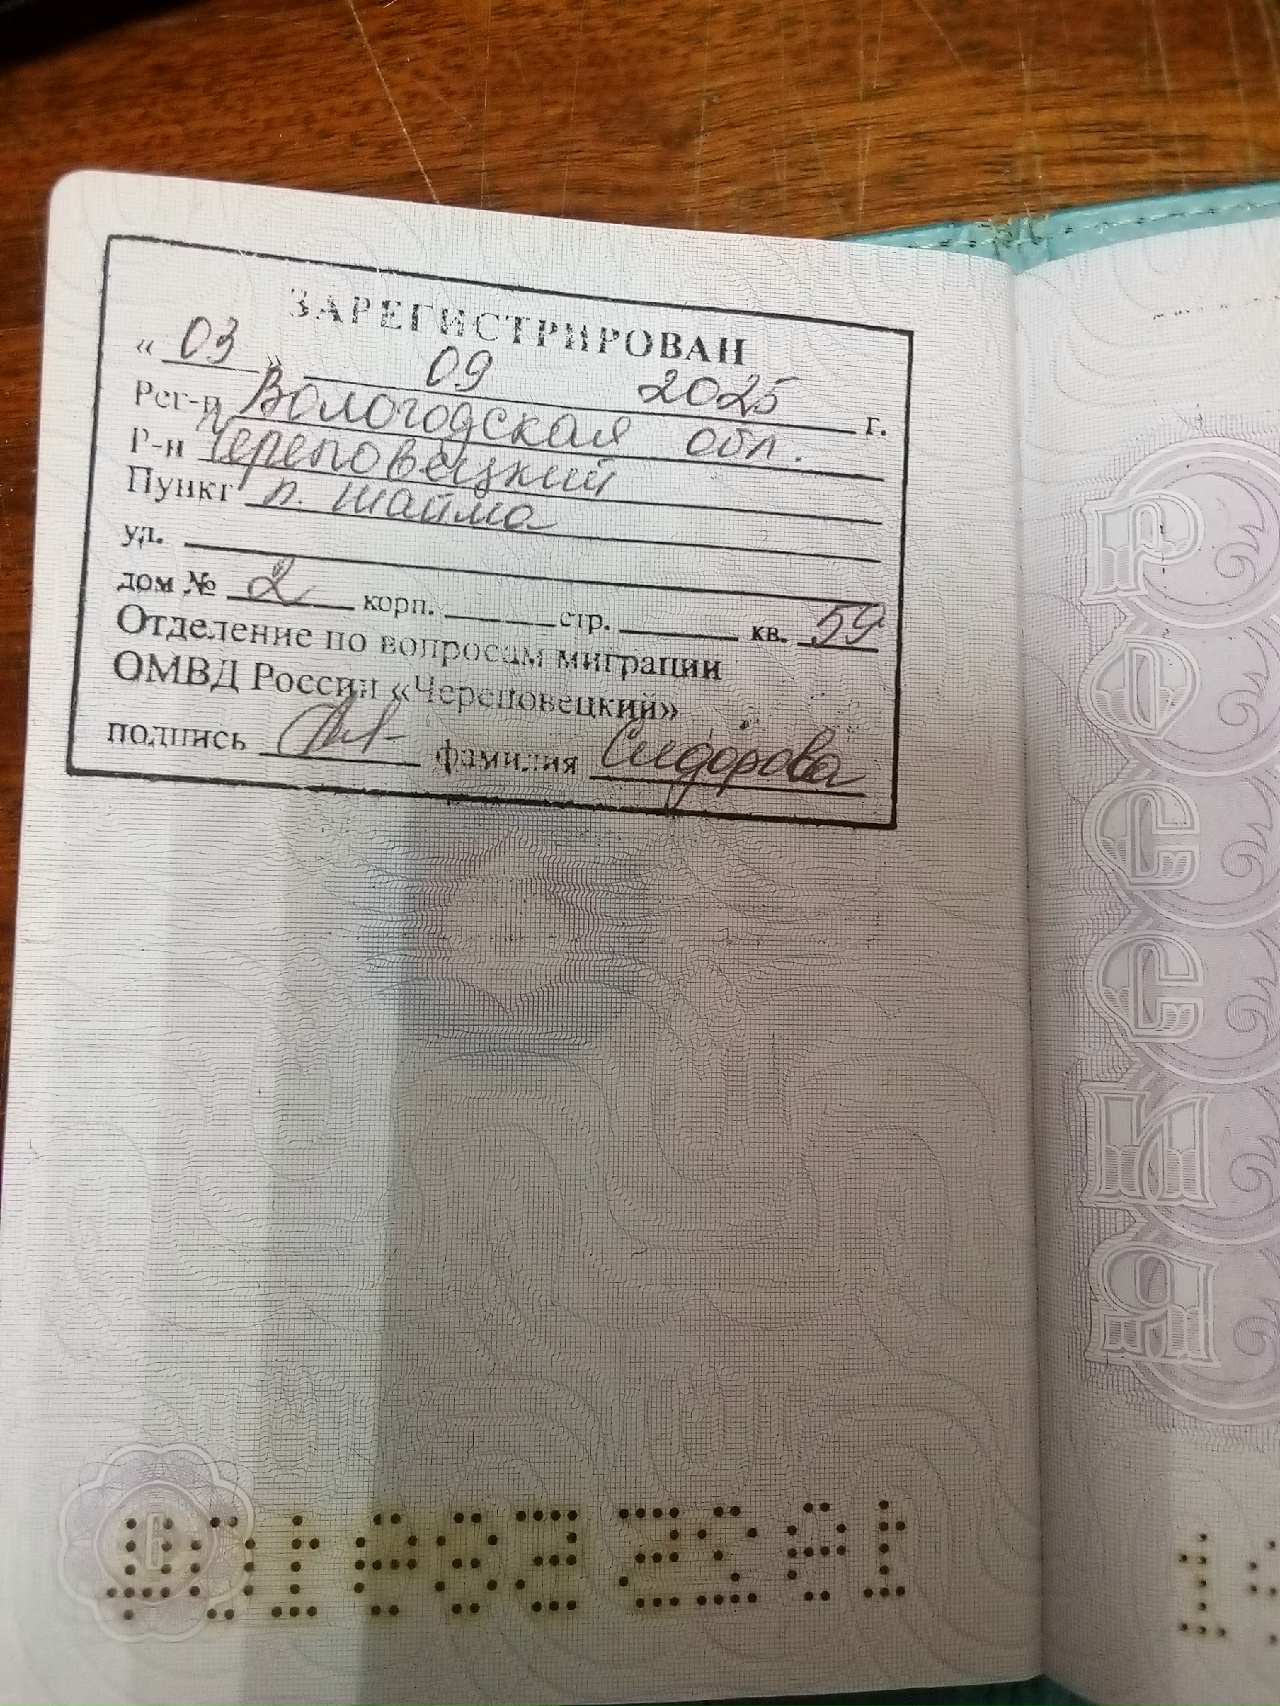 ЗАРЕГИСТРИРОВАН
« 03 » 09 2025 г.
Рег-н Вологодская обл.
Р-н Череповецкий
Пункт п. Шайма
ул.
дом № 2 корп. стр. кв. 59
Отделение по вопросам миграции
ОМВД России «Череповецкий»
подпись фамилия Сидорова
РОССИЯ
6